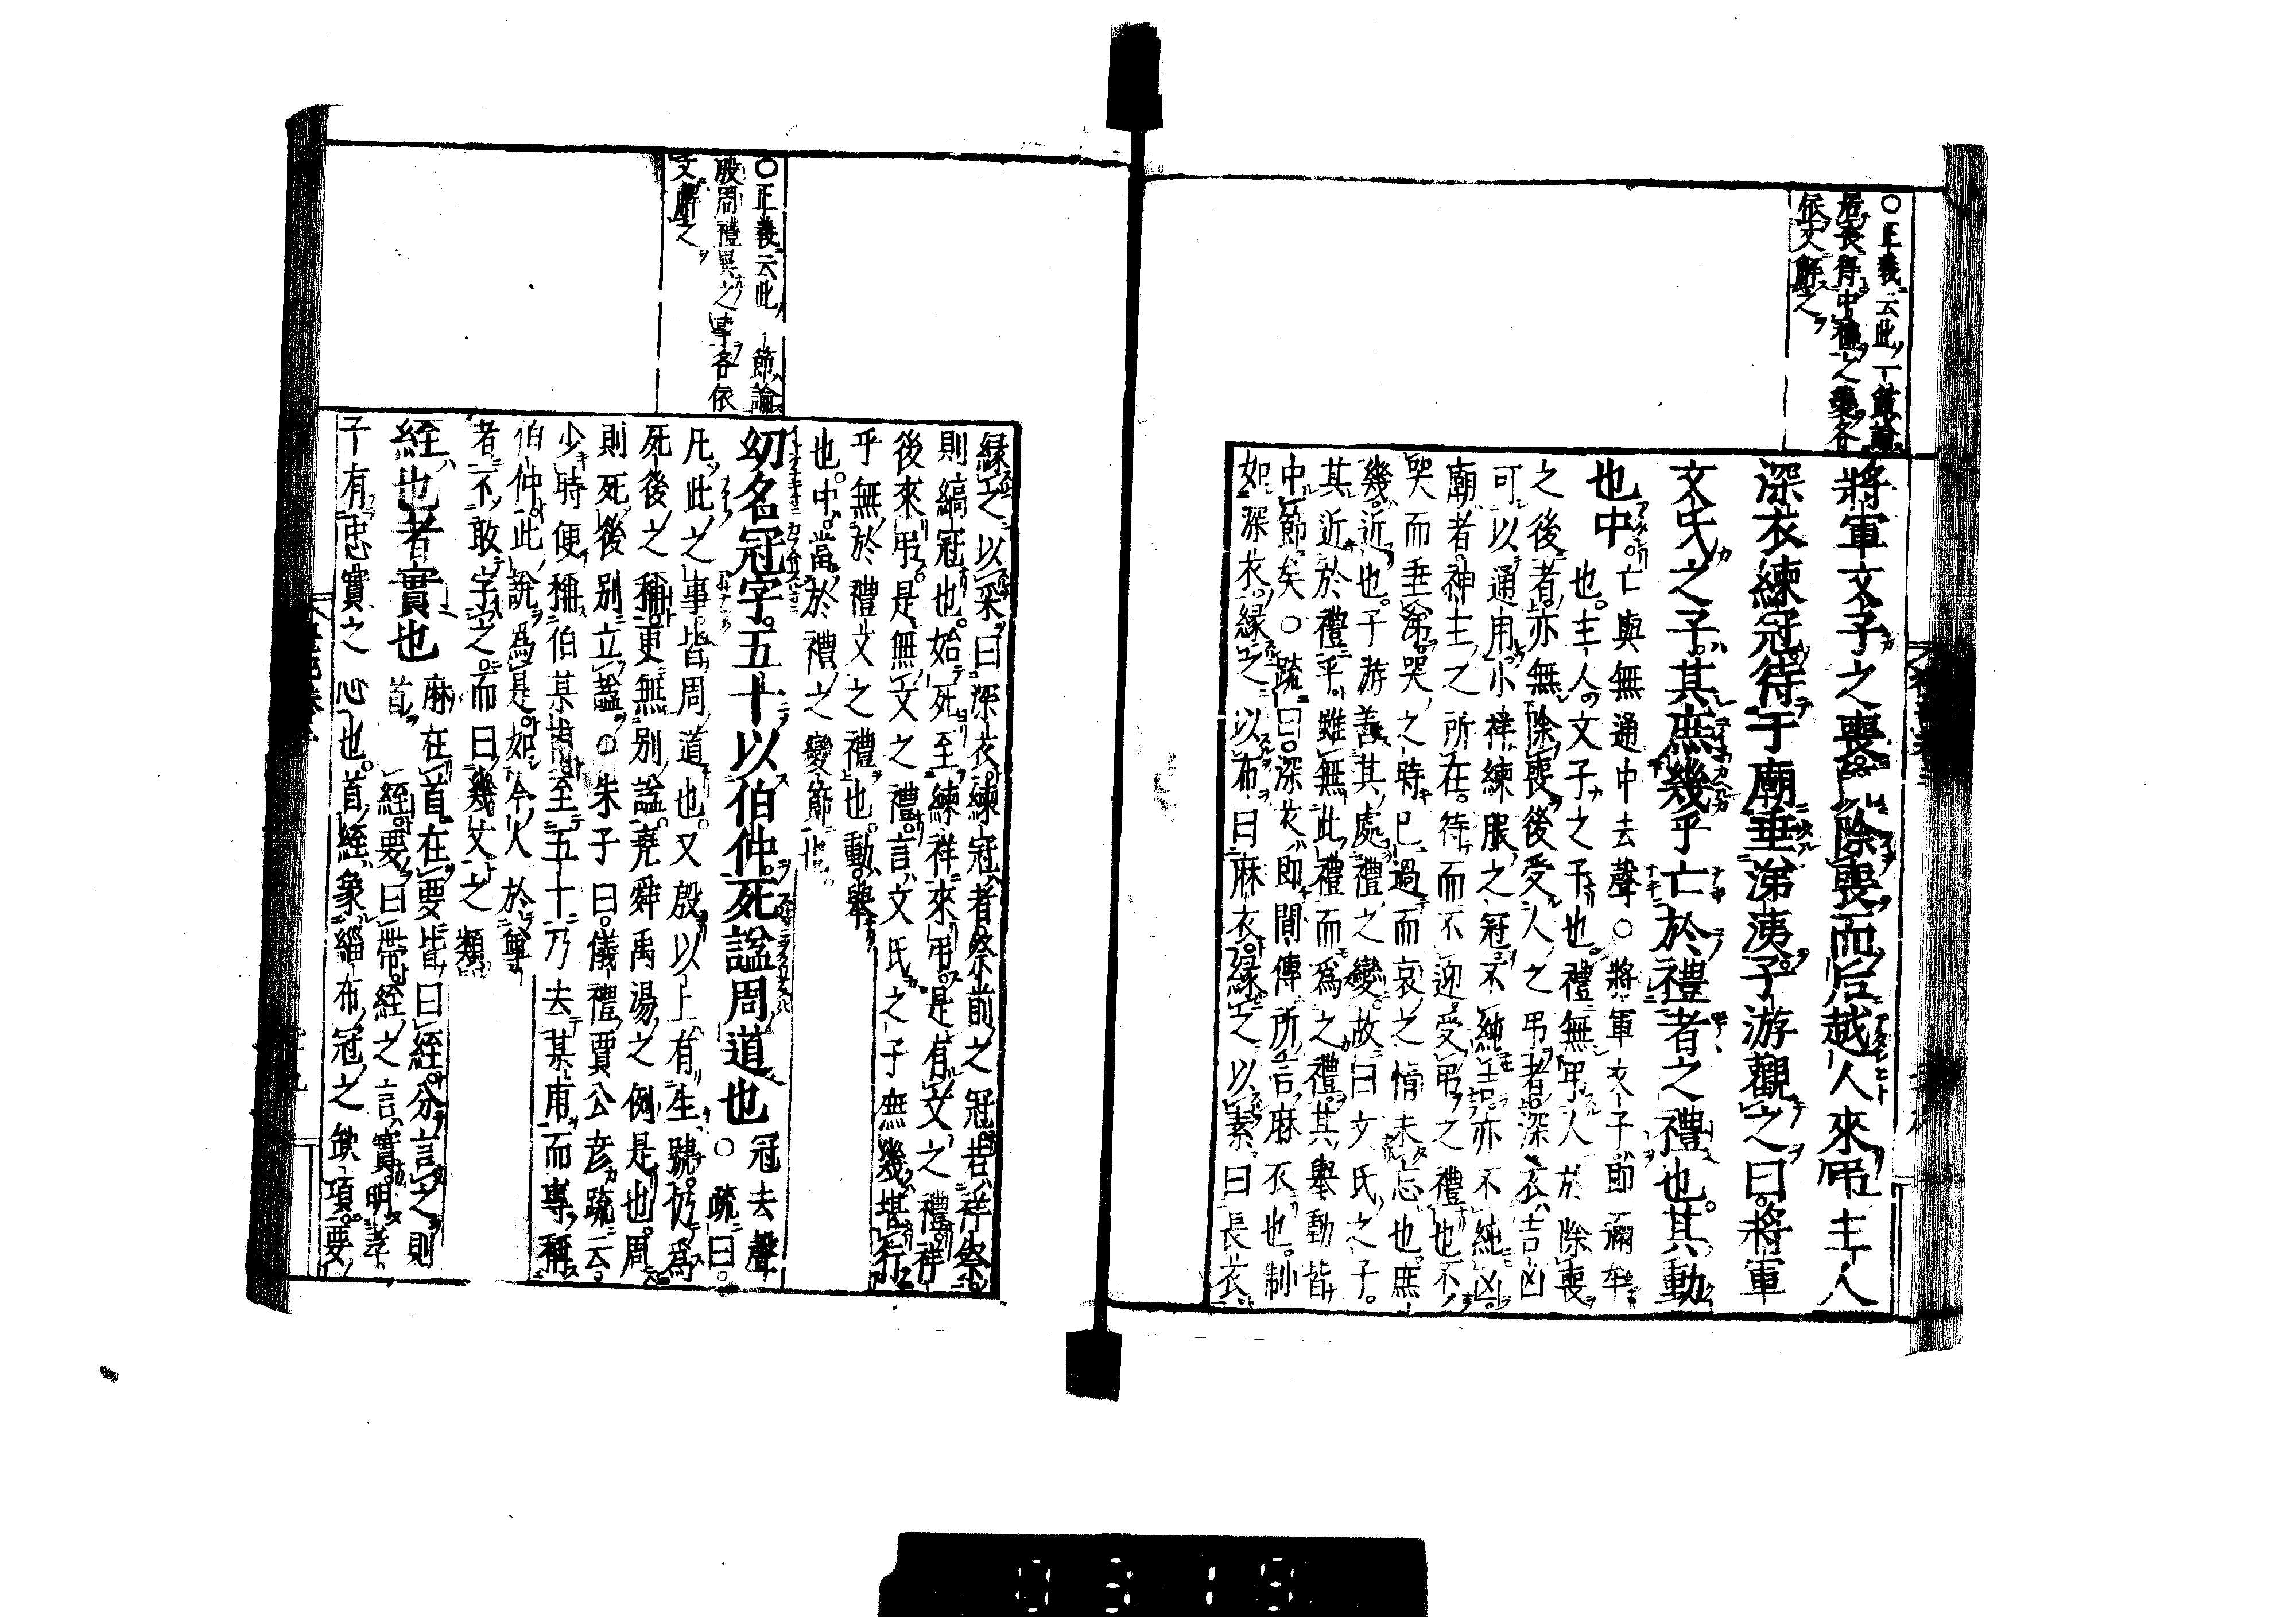 〇正義云此一節論
居喪得中禮之變各
依文解之
將軍文子之喪旣除喪而后越人來弔主人
深衣練冠待于廟垂涕洟子游觀之曰將軍
文氏之子其庶幾乎亡於禮者之禮也其動
也中
亡與無通中去聲〇將軍文子即彌牟
也主人文子之子也禮無弔人於除喪
之後者亦無除喪後受人之弔者深衣吉凶
可以通用小祥練服之冠不純吉亦不純凶
廟者神主之所在待而不迎受弔之禮也不
哭而垂涕哭之時已過而哀之情未忘也庶
幾近也子游善其處禮之變故曰文氏之子
其近於禮乎雖無此禮而爲之禮其舉動皆
中節矣〇疏曰深衣即間傳所言麻衣也制
如深衣緣之以布曰麻衣緣之以素曰長衣
緣之以采曰深衣練冠者祭前之冠若祥祭
則縞冠也始死至練祥來弔是有文之禮祥
後來弔是無文之禮言文氏之子無幾堪行
乎無於禮文之禮也動舉
也中當於禮之變節也
〇正義云此一節論
殷周禮異之事各依
文解之
幼名冠字五十以伯仲死諡周道也
冠去聲
〇疏曰
凡此之事皆周道也又殷以上有生號仍爲
死後之稱更無别諡堯舜禹湯之例是也周
則死後别立諡〇朱子曰儀禮賈公彥疏云
少時便稱伯某甫至五十乃去某甫而專稱
伯仲此說爲是如今人於尊
者不敢字之而曰幾丈之類
絰也者實也
麻在首在要皆曰絰分言之則
首曰絰要曰帶絰之言實明孝
子有忠實之心也首絰象緇布冠之缺項要